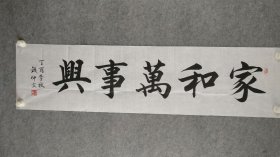 家和萬事興
丁酉季秋